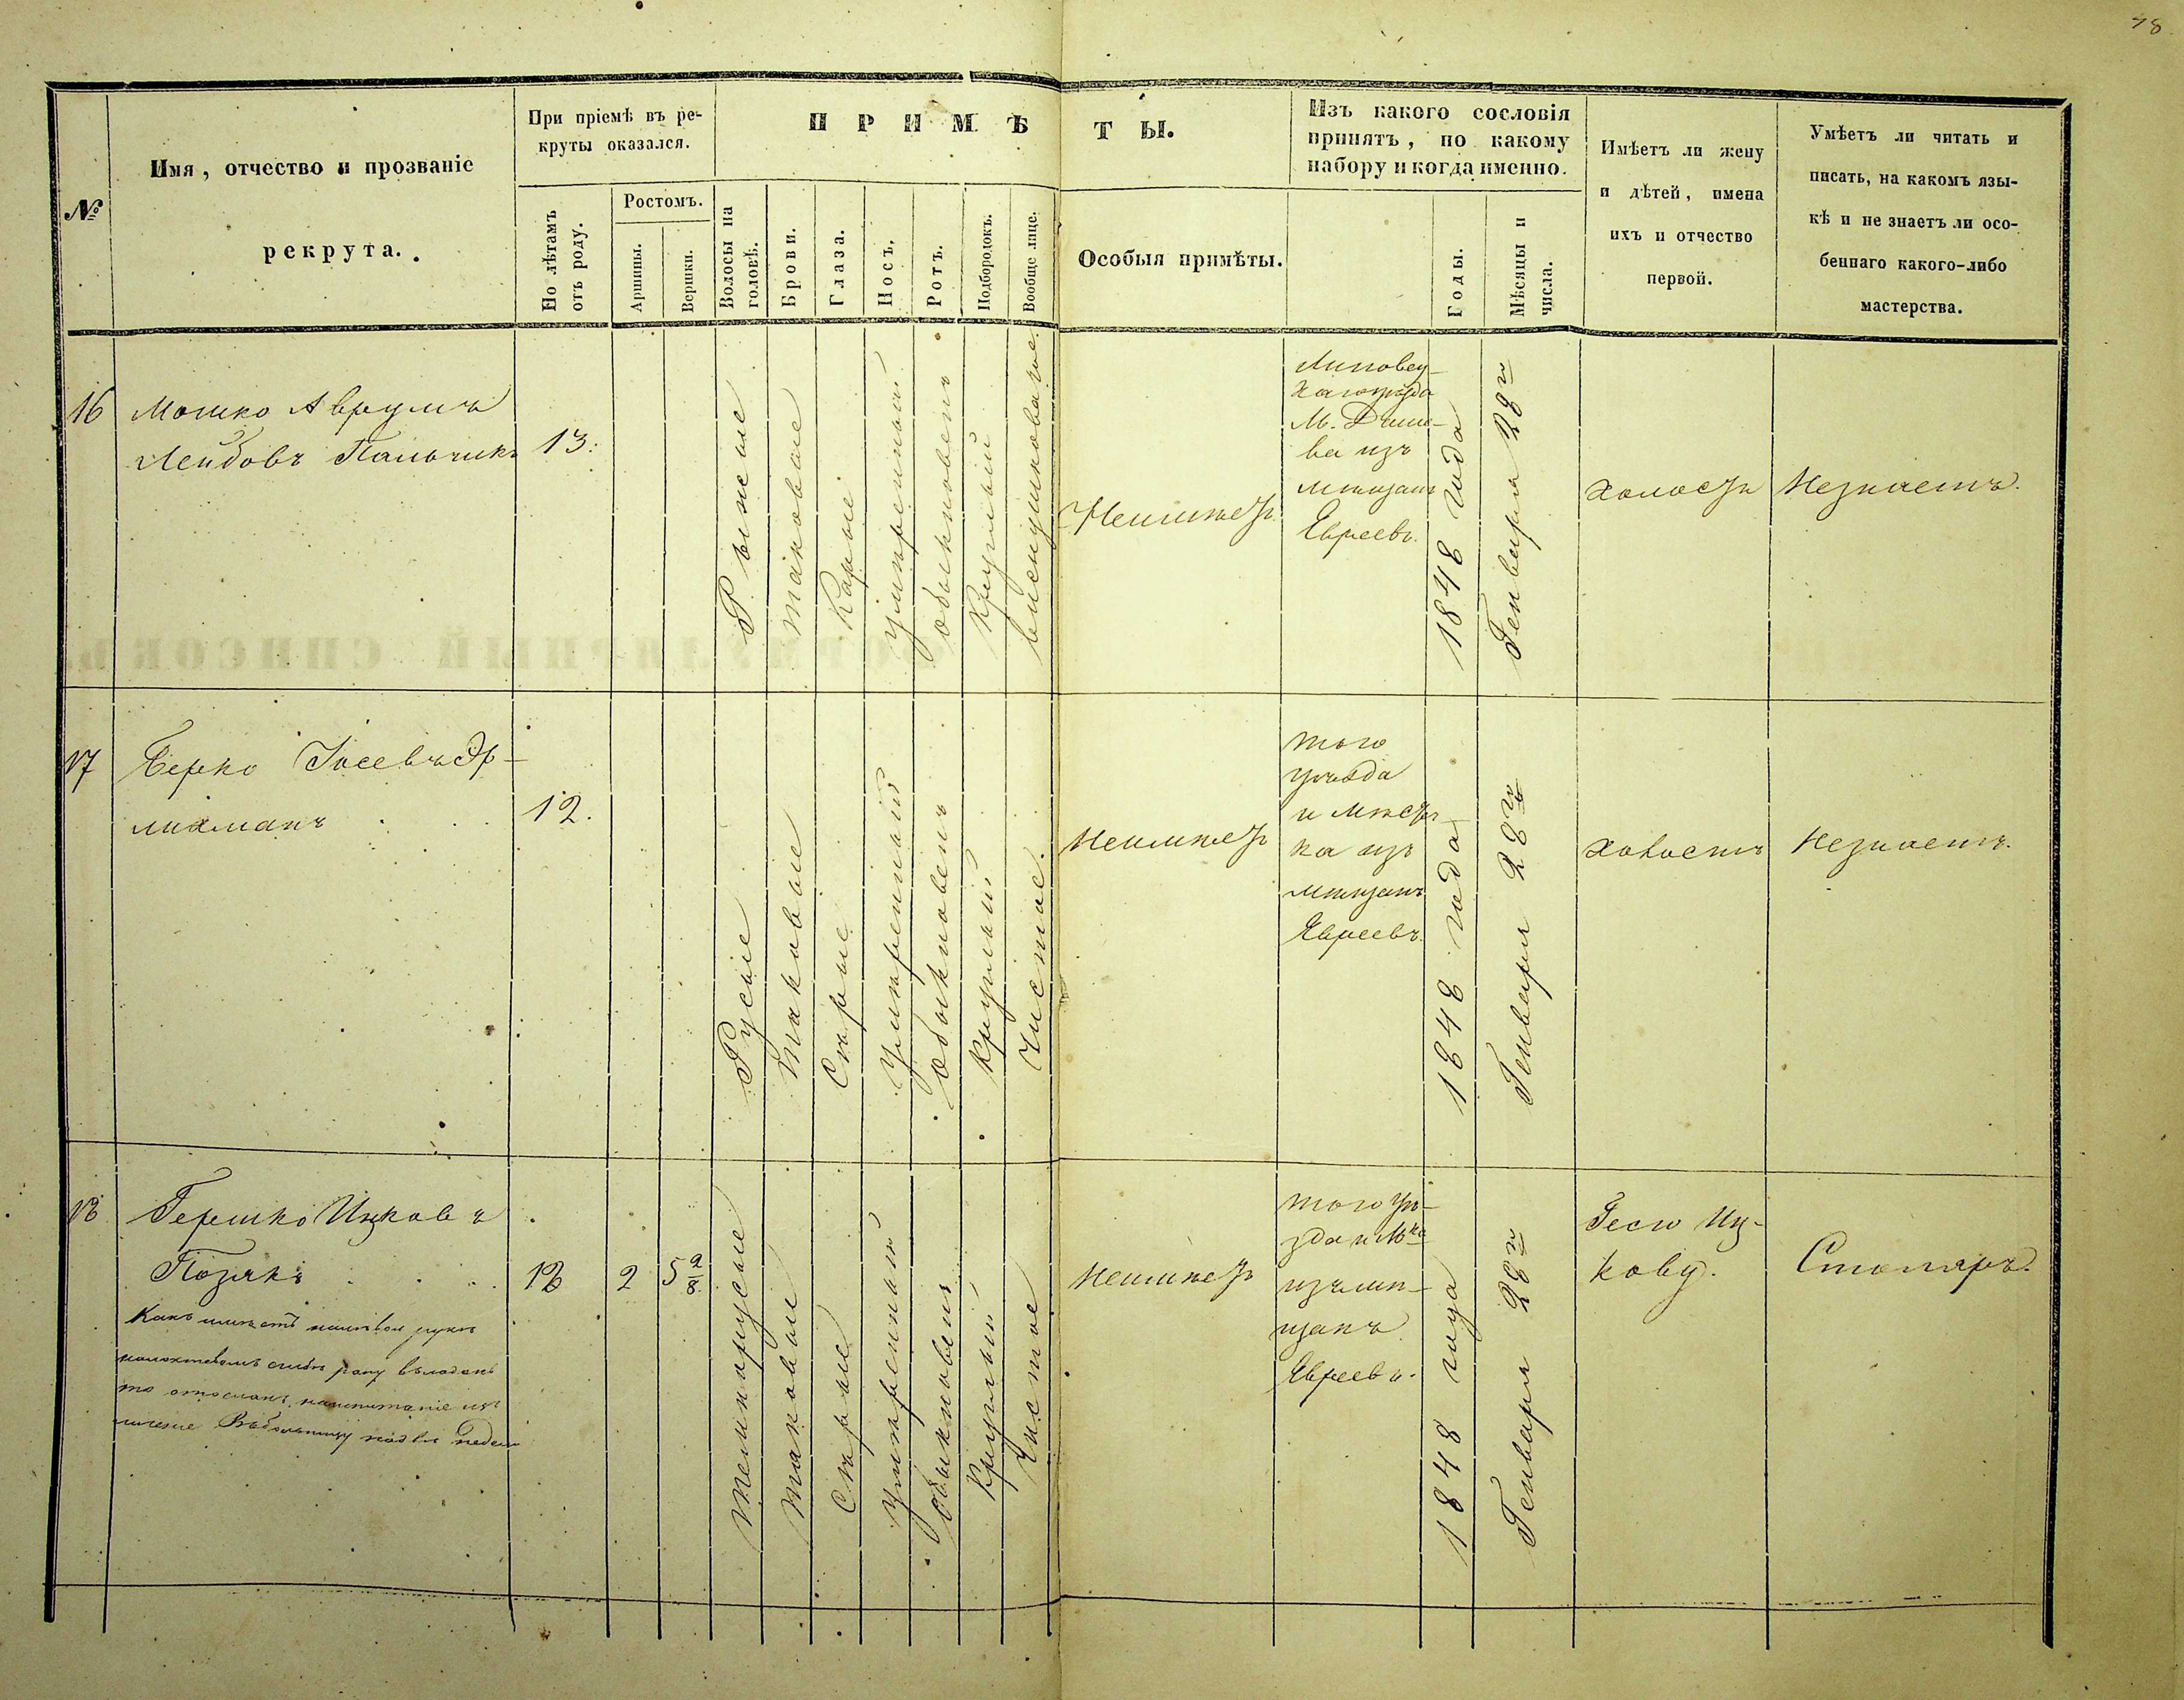 №
Имя, отчество и прозваніе
рекрута.
При пріемѣ въ ре-
круты оказался.
По лѣтамъ
отъ роду.
Ростомъ.
Аршины.
Вершки.
ПРИМѢТЫ.
Волосы на
головѣ.
Брови.
Глаза.
Носъ.
Ротъ.
Подбородокъ.
Вообще лице.
Особыя примѣты.
Изъ какого сословія
принятъ, по какому
набору и когда именно.
Годы.
Мѣсяцы и
числа.
Имѣетъ ли жену
и дѣтей, имена
ихъ и отчество
первой.
Умѣетъ ли читать и
писать, на какомъ язы-
кѣ и не знаетъ ли осо-
беннаго какого-либо
мастерства.
16
Мошко Аврумъ
Лейбовъ Пальчикъ
13.
Рыжые
таковые
Карые
умѣренный
обыкновенъ
Круглый
Неимѣетъ
Липовец-
каго уѣзда
М.
ва изъ
мѣщанъ
Евреевъ.
1848 года
Генваря 28го
холостъ
Незнаетъ.
17
Берко Іосевъ Эр-
лихманъ
12.
Русые
таковые
Сѣрые
Умѣренный
обыкновенъ
круглый
Чистое.
Неимѣетъ
того
уѣзда
и мѣстѣч-
ка изъ
мѣщанъ
Евреевъ.
1848 года
Генваря 28го
холостъ
Незнаетъ.
18
Гершко Ицковъ
Позякъ
18
2
5 2/8
темнорусые
таковые
Сѣрые
Умѣренный
обыкновенъ
Круглый
чистое
Неимѣетъ
того уѣ-
зда и М-ка
изъ мѣ-
щанъ
Евреевъ.
1848 года
Генваря 28го
Гесю Иц-
кову.
Столяръ.
Какъ имѣетъ налѣвой рукѣ
рану
то отосланъ
Въбольницу надвѣ недели